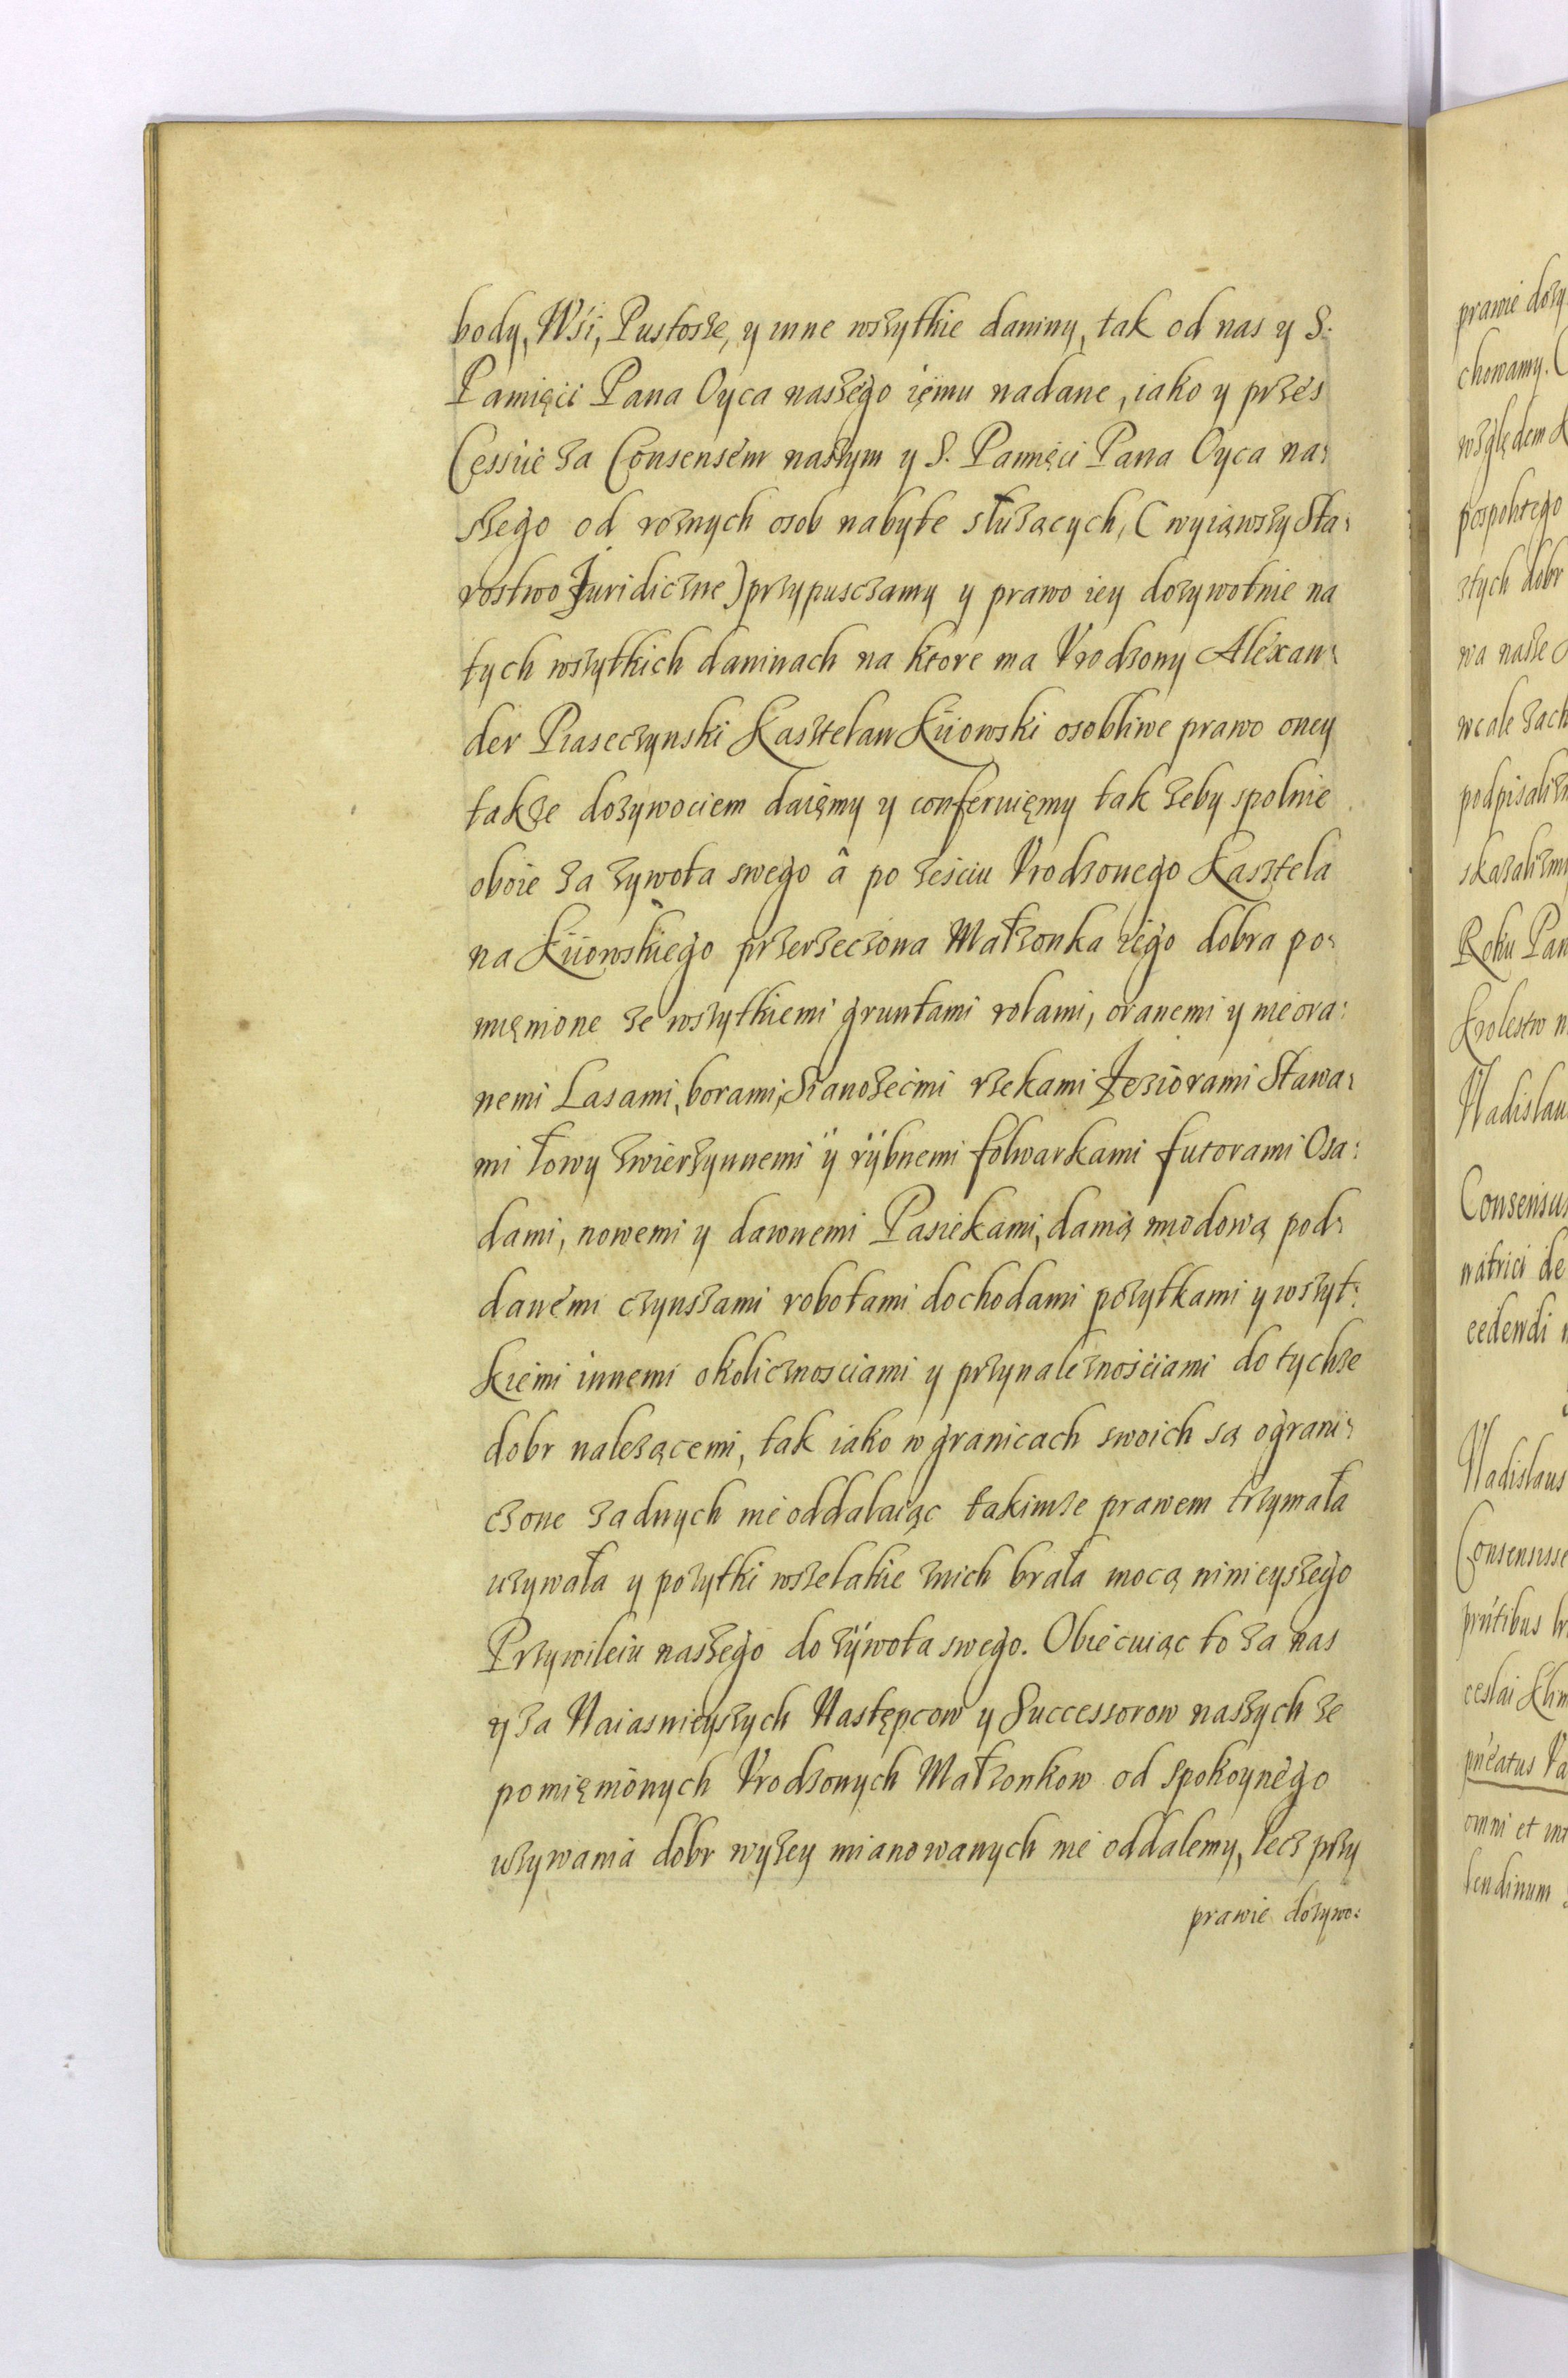 body, Wśi, Pustosze, y inne wszytkie daniny, tak od nas y S.
Pamięci Pana Oyca naszego iemu nadane, iako y przes
Cessiie za Consensem naszym y S. Pamięci Pana Oyca na:
szego od roznych osob nabyte służących, (wyiąwszy Sta:
rostwo Juridiczne) przypusczamy y prawo iey dozywotnie na
tych wszytkich daninach na ktore ma Vrodzony Alexan:
der Piaseczynski Kasztelan Kiiowski osobliwe prawo oney
takze dozywociem daięmy y conferuięmy tak zeby spolnie
oboie za zywota swego â po ześciu Vrodzonego Kasztela
na Kiiowskiego przerzeczona Małzonka iego dobra po:
mięnione ze wszytkiemi gruntami rolami, oranemi y nieora:
nemi Lasami, borami, Sianozećmi rzekami Jeziorami Stawa:
mi łowy zwierzynnemi ÿ rÿbnemi folwarkami futorami Osa:
dami, nowemi y dawnemi Pasiekami, danią miodową pod:
danemi czynszami robotami dochodami pozytkami y wszyt:
kiemi innemi okolicznosciami y przynaleznościami do tychze
dobr nalezącemi, tak iako w granicach swoich są ograni:
czone zadnych nie oddalaiąc takimze prawem trzymała
uzywała y pozytki wszelakie znich brała mocą ninieyszego
Przywileiu naszego do zÿwota swego. Obiecuiąc to za nas
y za Naiasnieyszych Następcow y Successorow naszych ze
pomięnionych Vrodzonych Małzonkow od spokoynego
uzywania dobr wyzey mianowanych nie oddalemy, lecz przy
prawie dozywo:
prawie dozy
chowamy.
względem
pospolitego
ztych dobr
wa nasze
wcale zach
podpisaliz
skazalizmy
Roku Pan
Krolestw n
Vladislau
Consensus
natrici de
cedendi
Vladislaus
Consensisse
prńtibus
ceslai Khm
pńeatus Va
omni et
lendinum